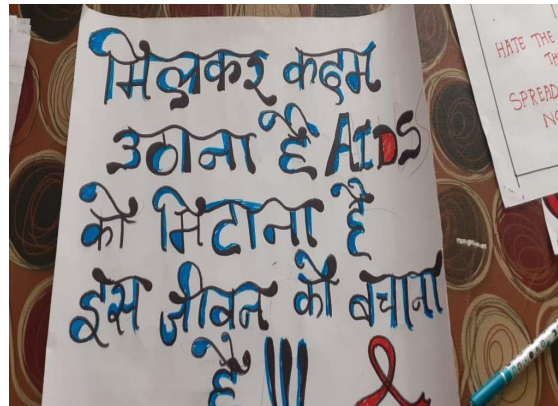 मिलकर कदम
उठाना है AIDS
को मिटाना है
इस जीवन को बचाना
है !!!
HATE THE
SPREAD